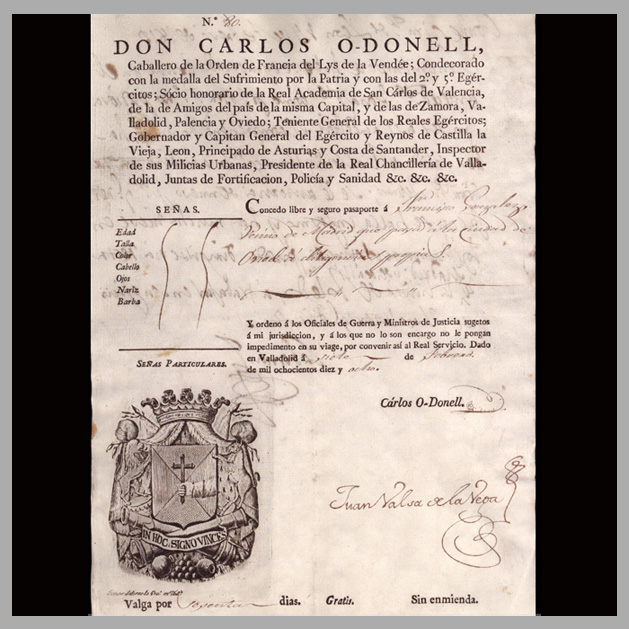 N.º 80.
DON CARLOS O-DONELL,
Caballero de la Orden de Francia del Lys de la Vendée; Condecorado
con la medalla del Sufrimiento por la Patria y con las del 2.º y 5.º Egér-
citos; Sócio honorario de la Real Academia de San Cárlos de Valencia,
de la de Amigos del país de la misma Capital, y de las de Zamora, Va-
lladolid, Palencia y Oviedo; Teniente General de los Reales Egércitos;
Gobernador y Capitan General del Egército y Reynos de Castilla la
Vieja, Leon, Principado de Asturias y Costa de Santander, Inspector
de sus Milicias Urbanas, Presidente de la Real Chancillería de Valla-
dolid, Juntas de Fortificacion, Policía y Sanidad &c. &c. &c.
SEÑAS.
Edad
Talla
Color
Cabello
Ojos
Nariz
Barba
SEÑAS PARTICULARES.
Concedo libre y seguro pasaporte á Francisco Gonzalez
de Madrid que ciudad de
Y ordeno á los Oficiales de Guerra y Ministros de Justicia sugetos
á mi jurisdiccion, y á los que no lo son encargo no le pongan
impedimento en su viage, por convenir así al Real Servicio. Dado
en Valladolid á siete de Febrero
de mil ochocientos diez y ocho.
Cárlos O-Donell.
Juan Valsa de la Vega
IN HOC SIGNO VINCES
Valga por sesenta dias. Gratis. Sin enmienda.